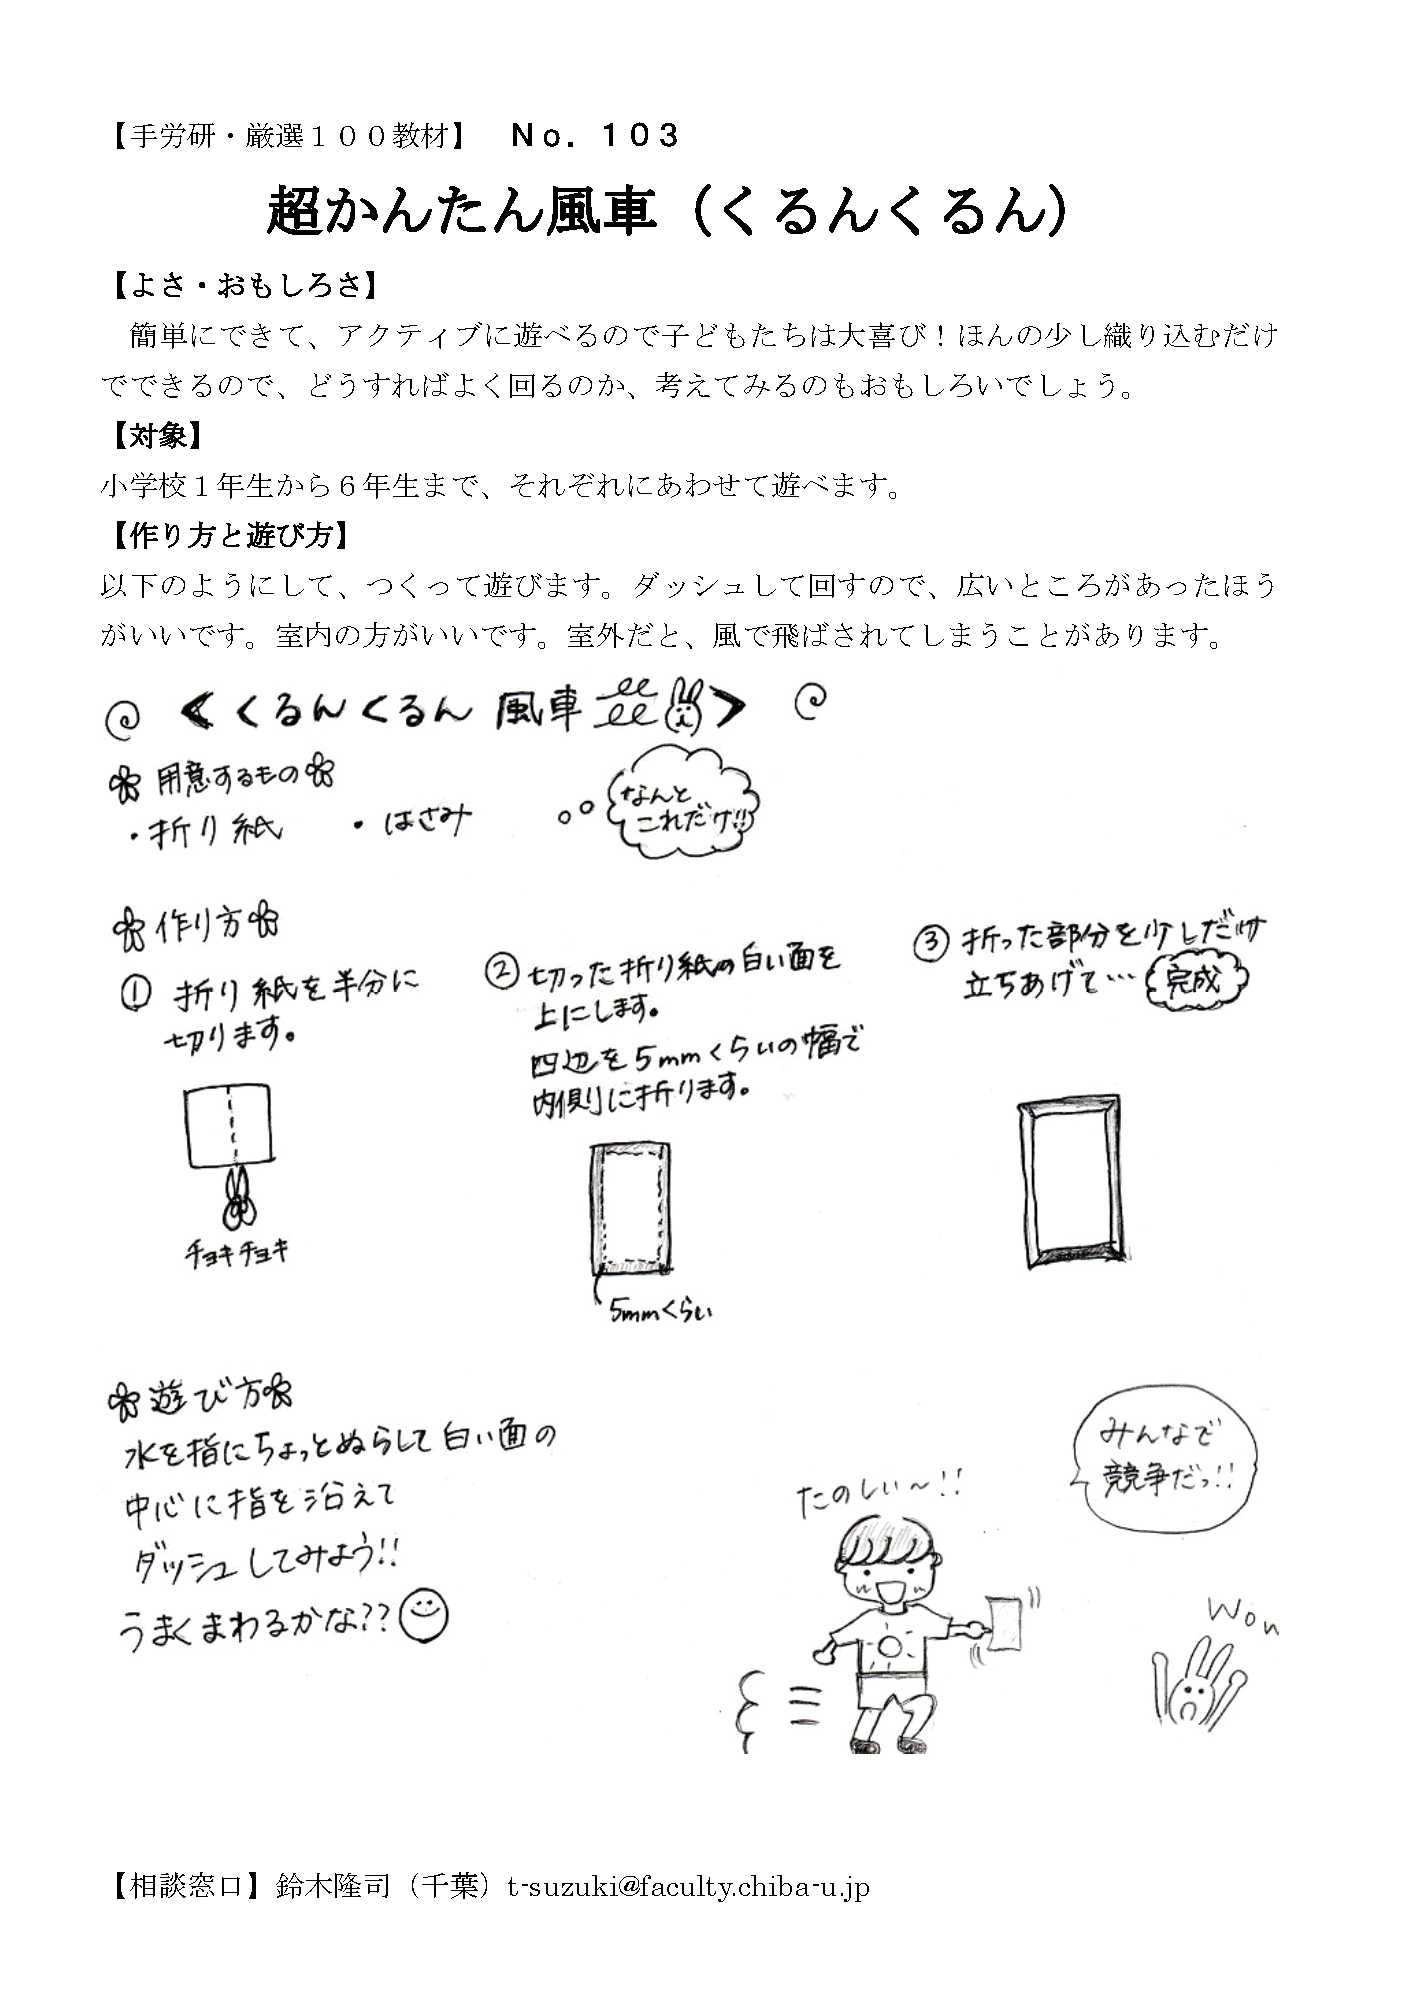 【手労研・厳選１００教材】　Ｎｏ．１０３
超かんたん風車（くるんくるん）
【よさ・おもしろさ】
簡単にできて、アクティブに遊べるので子どもたちは大喜び！ほんの少し織り込むだけ
でできるので、どうすればよく回るのか、考えてみるのもおもしろいでしょう。
【対象】
小学校１年生から６年生まで、それぞれにあわせて遊べます。
【作り方と遊び方】
以下のようにして、つくって遊びます。ダッシュして回すので、広いところがあったほう
がいいです。室内の方がいいです。室外だと、風で飛ばされてしまうことがあります。
＜くるんくるん 風車＞
用意するもの
・折り紙　・はさみ
なんと
これだけ!!
作り方
① 折り紙を半分に
切ります。
チョキチョキ
② 切った折り紙の白い面を
上にします。
四辺を5mmくらいの幅で
内側に折ります。
5mmくらい
③ 折った部分を少しだけ
立ちあげて… 完成
遊び方
水を指にちょっとぬらして白い面の
中心に指を沿えて
ダッシュしてみよう!!
うまくまわるかな??
たのしい～!!
みんなで
競争だっ!!
Won
【相談窓口】鈴木隆司（千葉）t-suzuki@faculty.chiba-u.jp